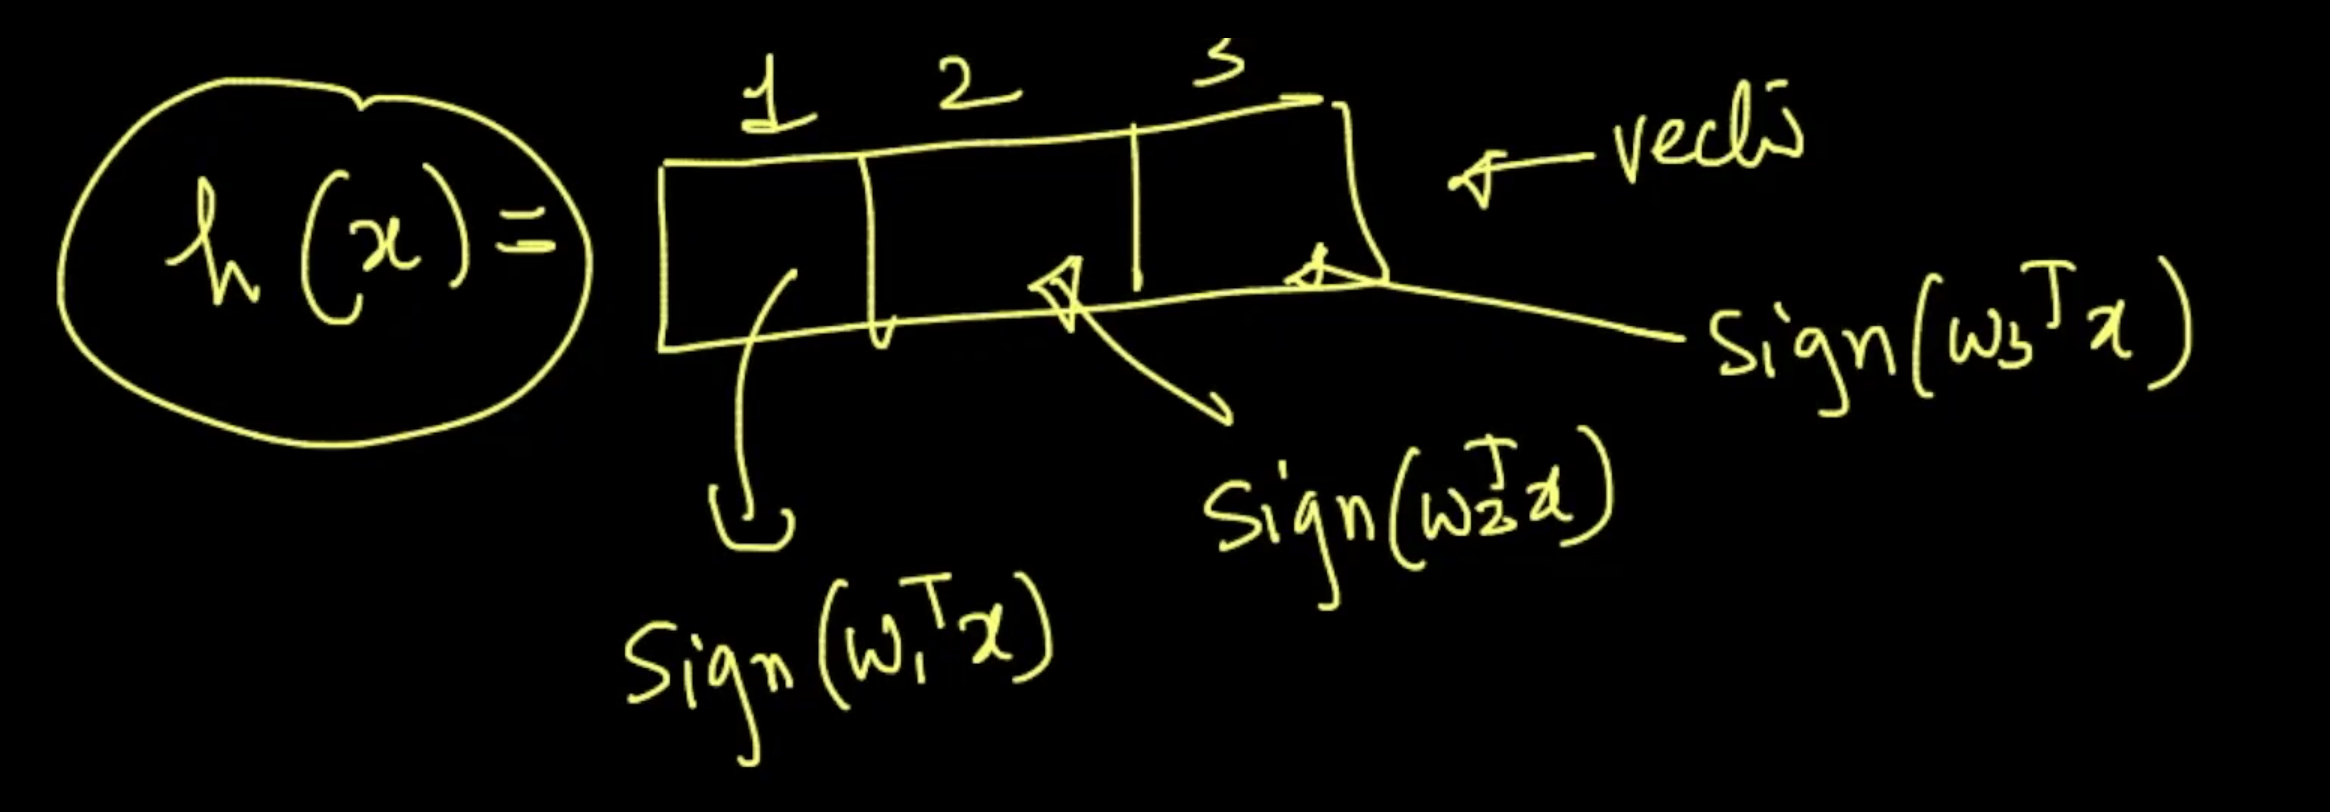 1 2 3
h(x) =
vector
Sign(w₃ᵀx)
Sign(w₂ᵀx)
Sign(w₁ᵀx)